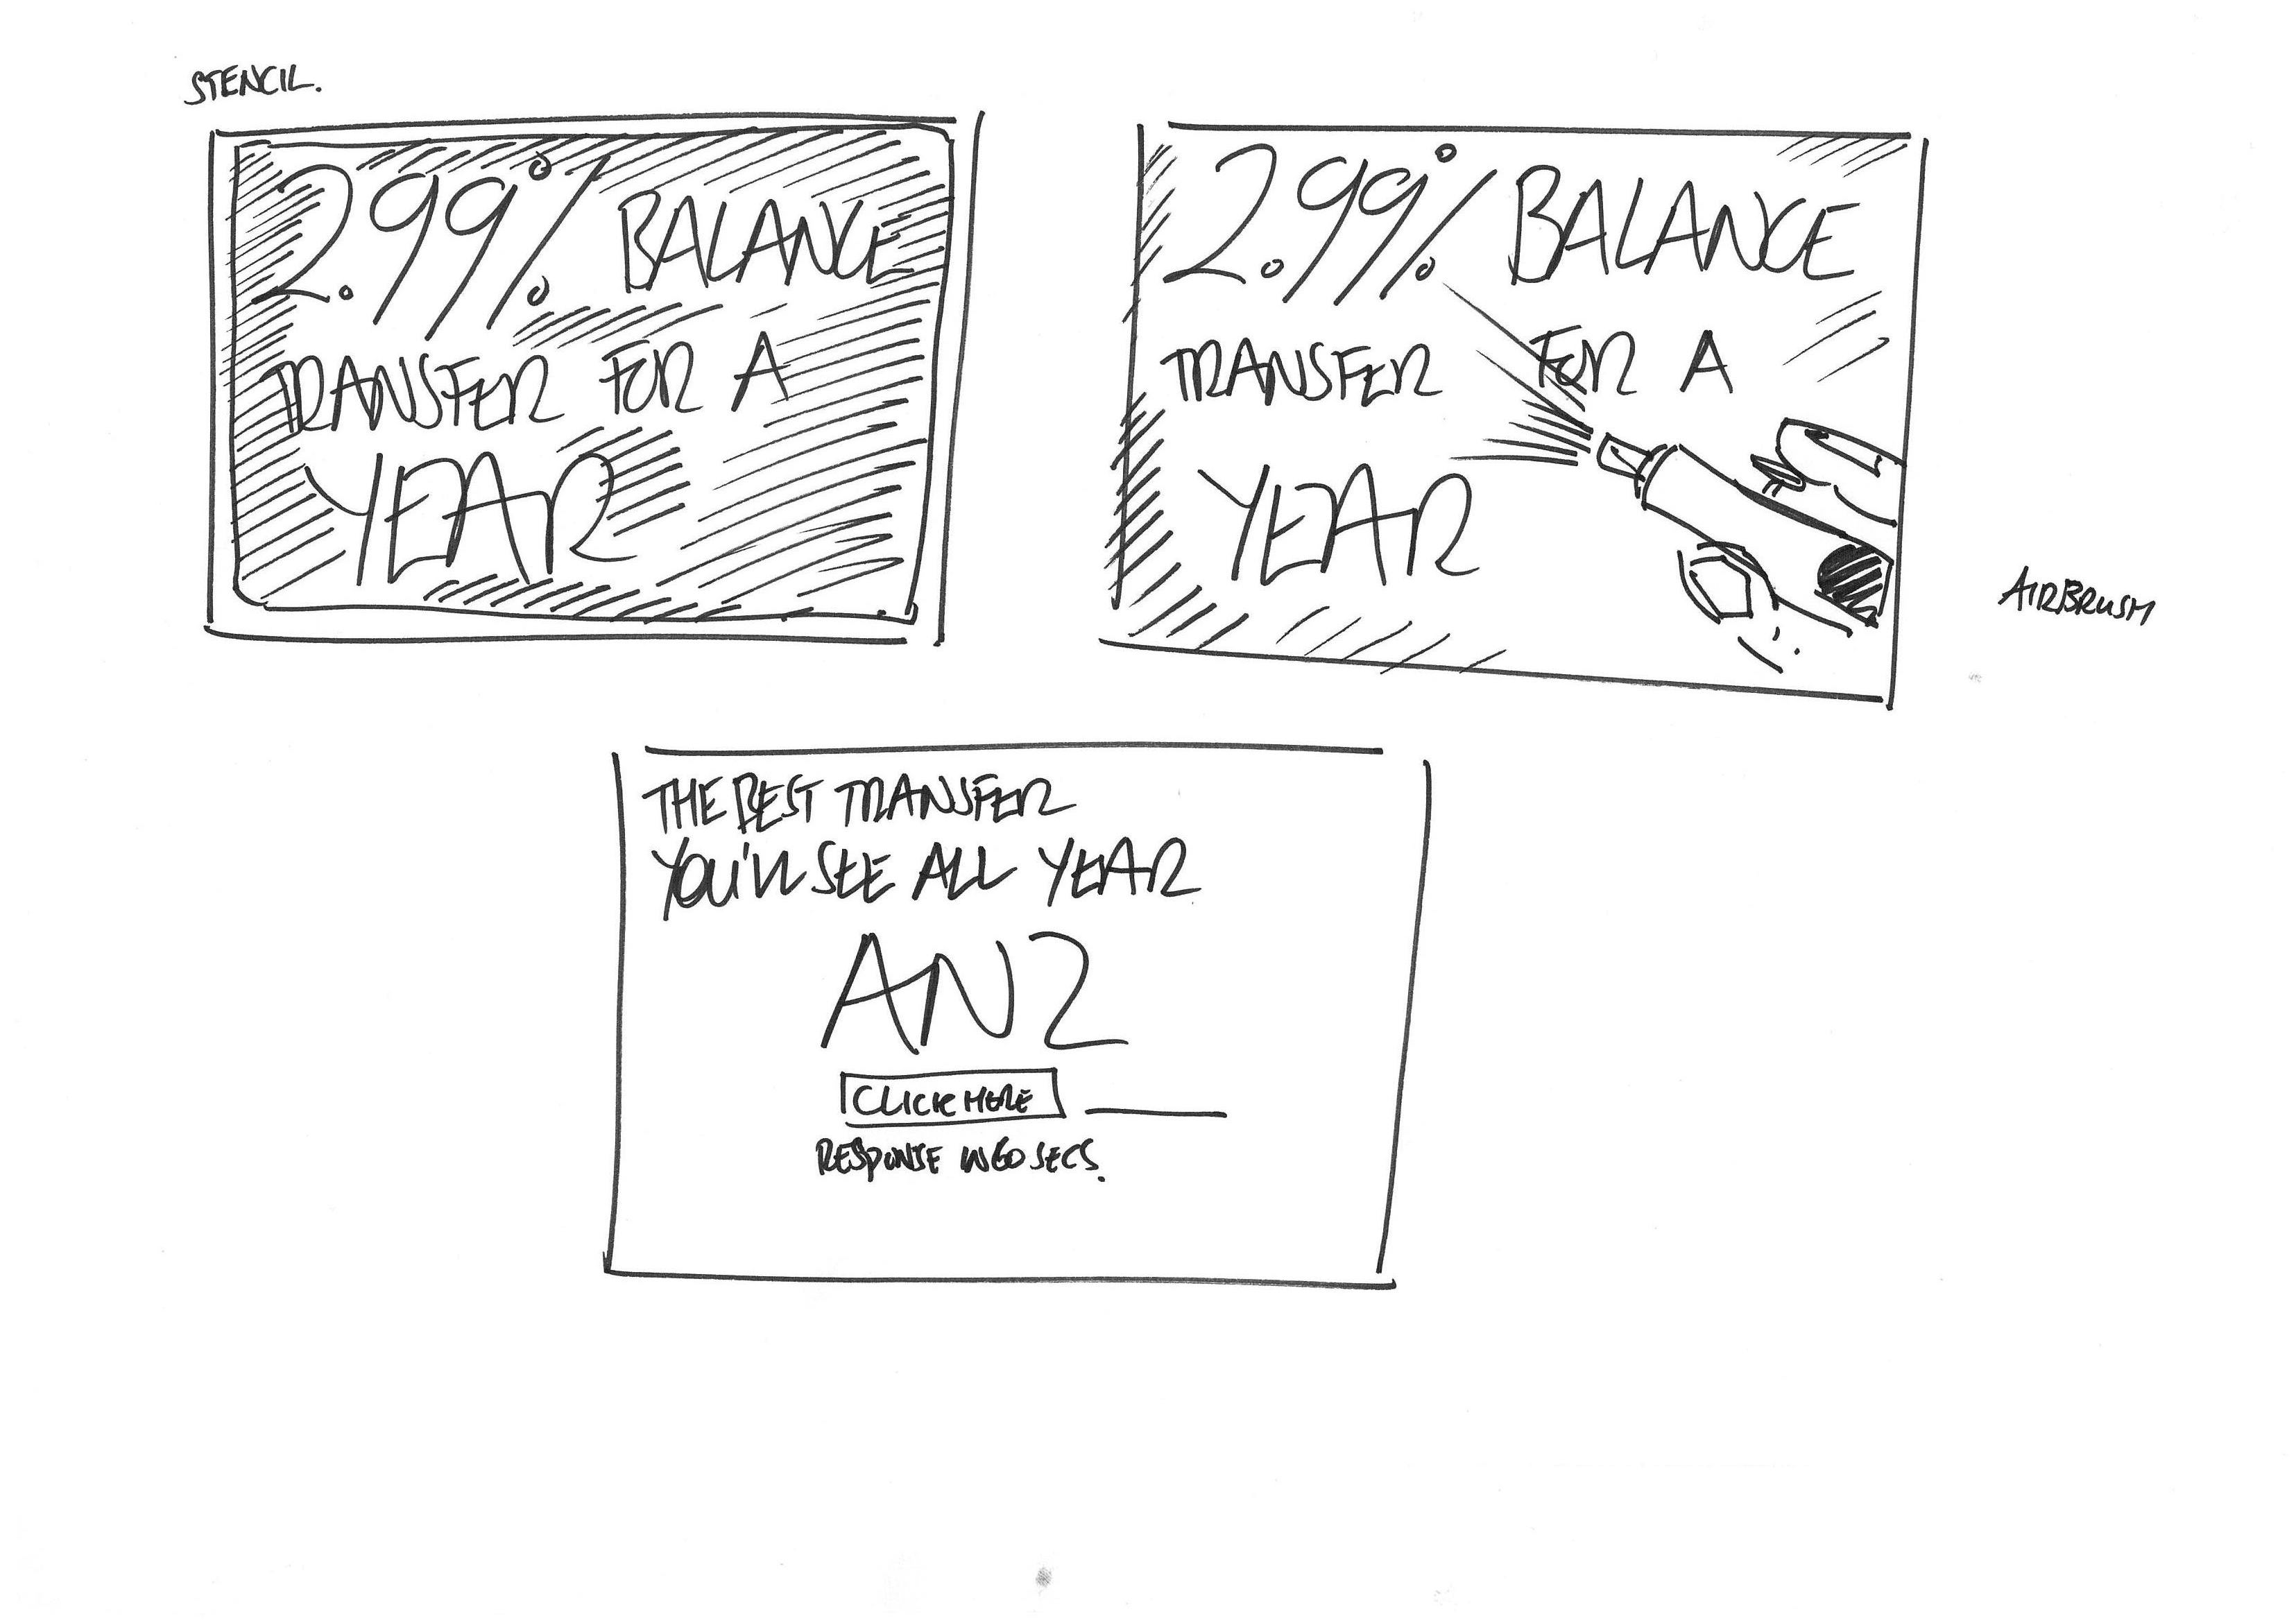 STENCIL.
2.99% BALANCE
TRANSFER FOR A
YEAR
2.99% BALANCE
TRANSFER FOR A
YEAR
AIRBRUSH
THE BEST TRANSFER
YOU'LL SEE ALL YEAR
ANZ
CLICK HERE
RESPONSE IN 60 SECS.